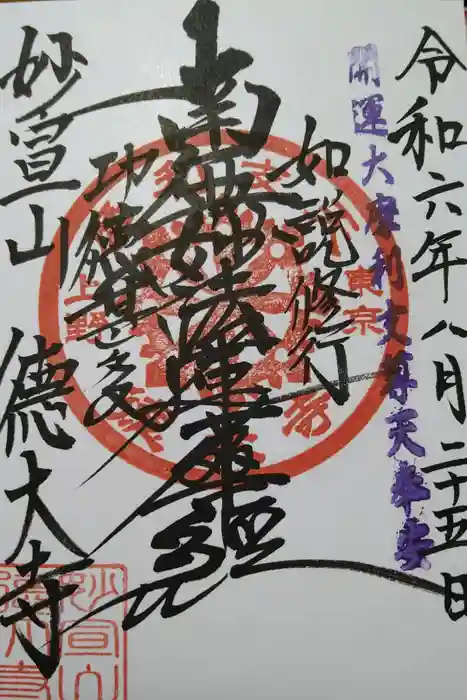 令和六年八月二十五日
開運大摩利支尊天奉安
如説修行
南無妙法蓮華経
功徳甚多
妙宣山 徳大寺
東京
上野
妙宣山
徳大寺